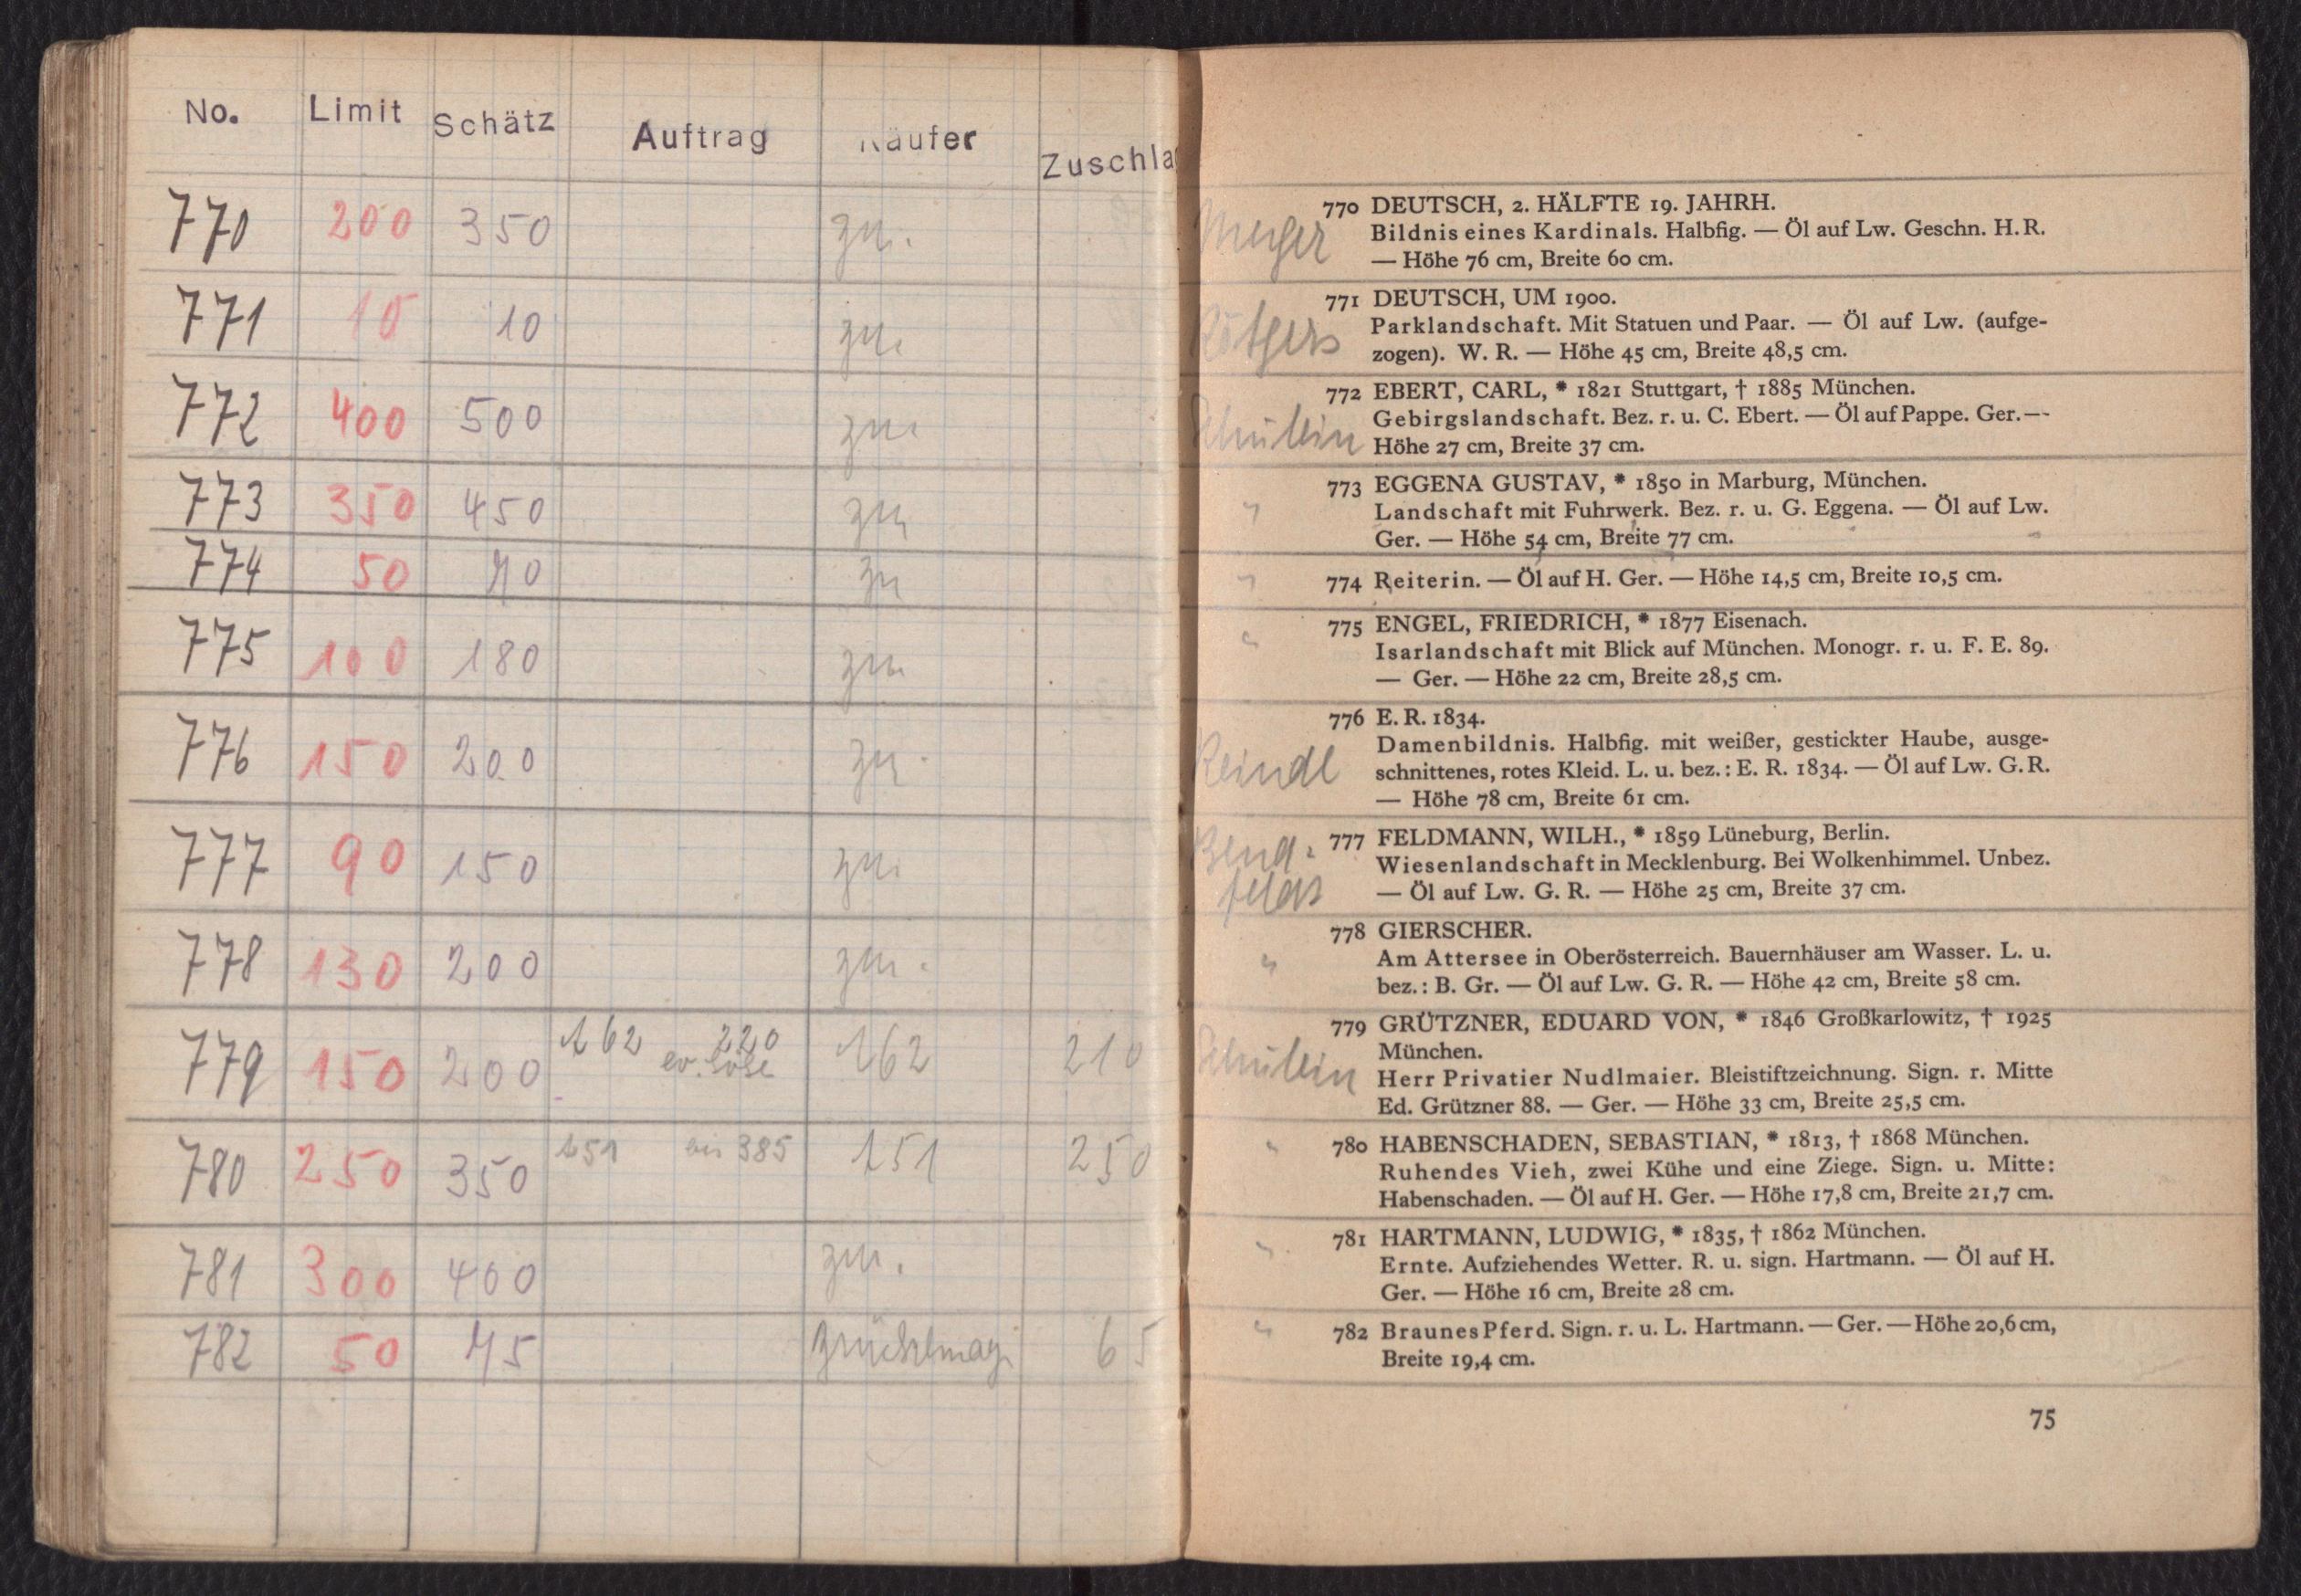 No. Limit Schätz Auftrag Käufer Zuschla
770 200 350 zu.
771 10 10 zu.
772 400 500 zu.
773 350 450 zu
774 50 zu
775 100 180 zu.
776 150 200 zu.
777 90 150 zu.
778 130 200 zu.
779 150 200 162 220 162 210
780 250 350 151 bis 385 151 250
781 300 400 zu.
782 50 65
770 DEUTSCH, 2. HÄLFTE 19. JAHRH.
Bildnis eines Kardinals. Halbfig. — Öl auf Lw. Geschn. H. R.
— Höhe 76 cm, Breite 60 cm.
771 DEUTSCH, UM 1900.
Rötgers Parklandschaft. Mit Statuen und Paar. — Öl auf Lw. (aufge-
zogen). W. R. — Höhe 45 cm, Breite 48,5 cm.
772 EBERT, CARL, * 1821 Stuttgart, † 1885 München.
Schülein Gebirgslandschaft. Bez. r. u. C. Ebert. — Öl auf Pappe. Ger. —
Höhe 27 cm, Breite 37 cm.
773 EGGENA GUSTAV, * 1850 in Marburg, München.
" Landschaft mit Fuhrwerk. Bez. r. u. G. Eggena. — Öl auf Lw.
Ger. — Höhe 54 cm, Breite 77 cm.
" 774 Reiterin. — Öl auf H. Ger. — Höhe 14,5 cm, Breite 10,5 cm.
775 ENGEL, FRIEDRICH, * 1877 Eisenach.
" Isarlandschaft mit Blick auf München. Monogr. r. u. F. E. 89.
— Ger. — Höhe 22 cm, Breite 28,5 cm.
776 E. R. 1834.
Damenbildnis. Halbfig. mit weißer, gestickter Haube, ausge-
Reindl schnittenes, rotes Kleid. L. u. bez.: E. R. 1834. — Öl auf Lw. G. R.
— Höhe 78 cm, Breite 61 cm.
777 FELDMANN, WILH., * 1859 Lüneburg, Berlin.
Wiesenlandschaft in Mecklenburg. Bei Wolkenhimmel. Unbez.
— Öl auf Lw. G. R. — Höhe 25 cm, Breite 37 cm.
778 GIERSCHER.
" Am Attersee in Oberösterreich. Bauernhäuser am Wasser. L. u.
bez.: B. Gr. — Öl auf Lw. G. R. — Höhe 42 cm, Breite 58 cm.
779 GRÜTZNER, EDUARD VON, * 1846 Großkarlowitz, † 1925
München.
Schülein Herr Privatier Nudlmaier. Bleistiftzeichnung. Sign. r. Mitte
Ed. Grützner 88. — Ger. — Höhe 33 cm, Breite 25,5 cm.
" 780 HABENSCHADEN, SEBASTIAN, * 1813, † 1868 München.
Ruhendes Vieh, zwei Kühe und eine Ziege. Sign. u. Mitte:
Habenschaden. — Öl auf H. Ger. — Höhe 17,8 cm, Breite 21,7 cm.
" 781 HARTMANN, LUDWIG, * 1835, † 1862 München.
Ernte. Aufziehendes Wetter. R. u. sign. Hartmann. — Öl auf H.
Ger. — Höhe 16 cm, Breite 28 cm.
" 782 Braunes Pferd. Sign. r. u. L. Hartmann. — Ger. — Höhe 20,6 cm,
Breite 19,4 cm.
75